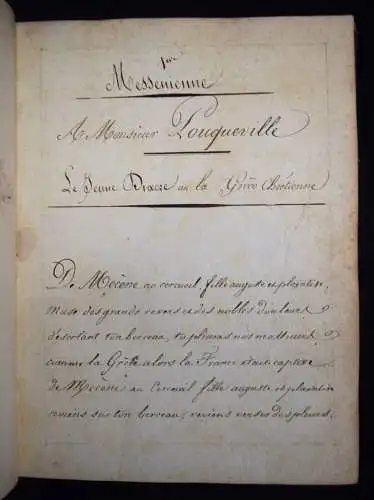 1ère
Messenienne
A Monsieur Pouqueville
Le Jeune Diacre ou la Grèce Chrétienne
De Mecène au cercueil fille auguste et plaintive
muse des grands revers et des nobles douleurs
désertant ton berceau, tu pleuras nos malheurs
comme la Grèce alors la France était captive
de Mecène au Cercueil fille auguste et plaintive
reviens sur ton berceau, reviens verser des pleurs.